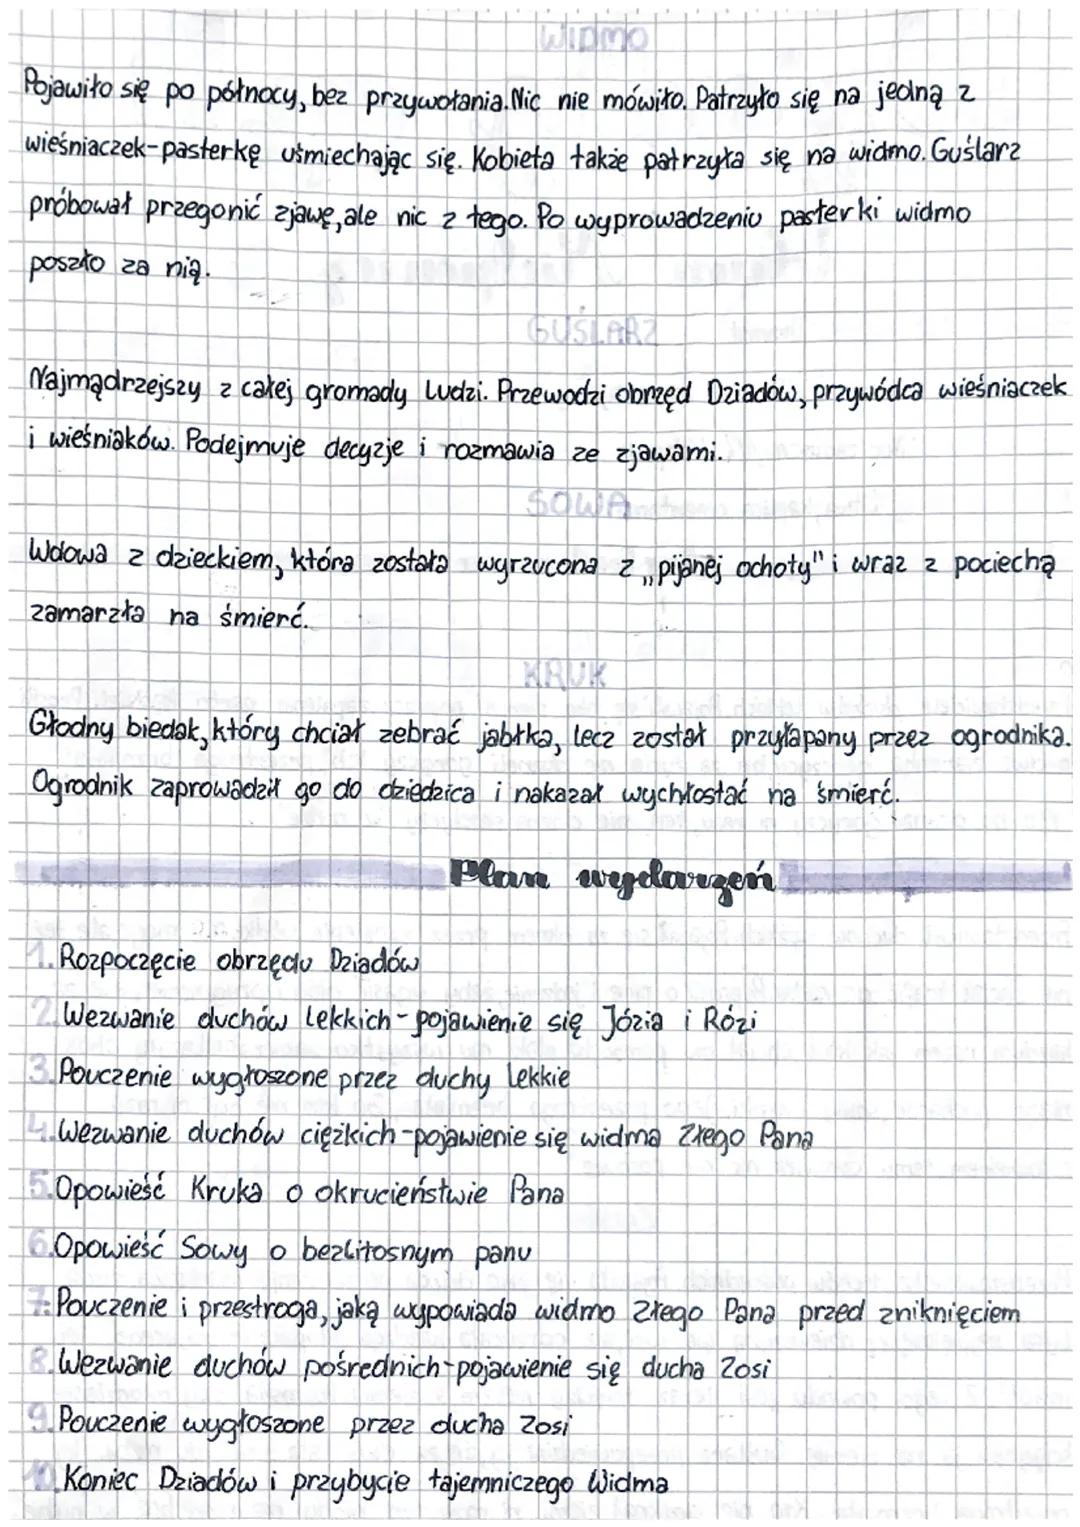 WIDMO
Pojawiło się po północy, bez przywołania. Nic nie mówiło. Patrzyło się na jedną z
wieśniaczek-pasterkę uśmiechając się. Kobieta także patrzyła się na widmo. Guślarz
próbował przegonić zjawę, ale nic z tego. Po wyprowadzeniu pasterki widmo
poszło za nią.
GUŚLARZ
Najmądrzejszy z całej gromady ludzi. Przewodzi obrzęd Dziadów, przywódca wieśniaczek
i wieśniaków. Podejmuje decyzje i rozmawia ze zjawami.
SOWA
Wdowa z dzieckiem, która została wyrzucona z „pijanej ochoty" i wraz z pociechą
zamarzła na śmierć.
KRUK
Głodny biedak, który chciał zebrać jabłka, lecz został przyłapany przez ogrodnika.
Ogrodnik zaprowadził go do dziedzica i nakazał wychłostać na śmierć.
Plan wydarzeń
1. Rozpoczęcie obrzędu Dziadów
2. Wezwanie duchów lekkich - pojawienie się Józia i Rózi
3. Pouczenie wygłoszone przez duchy lekkie
4. Wezwanie duchów ciężkich - pojawienie się widma Złego Pana
5. Opowieść Kruka o okrucieństwie Pana
6. Opowieść Sowy o bezlitosnym panu
7. Pouczenie i przestroga, jaką wypowiada widmo Złego Pana przed zniknięciem
8. Wezwanie duchów pośrednich - pojawienie się ducha Zosi
9. Pouczenie wygłoszone przez ducha Zosi
10. Koniec Dziadów i przybycie tajemniczego Widma